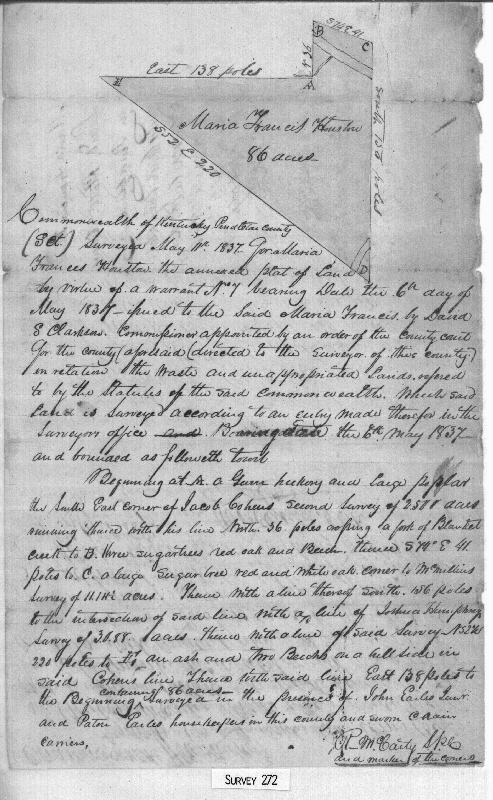 S74E 41
B
C
N 36
East 138 poles
H
A
Maria Francis Houston
86 acres
S52 E 220
South 156 poles
D
Commonwealth of Kentucky Pendleton county
(Sct.) Surveyed May 11th 1837 For Maria
Frances Houston the annexed plat of Land
by virtue of a warrant No 7 bearing Date the 6th day of
May 1837 issued to the Said Maria Francis by David
E Clarkson. Commissioner appointed by an order of the County court
for the county (aforesaid) directed to the Surveyor of this county
in relation the Waste and unappropriated Lands. refered
to by the Statutes of the said commonwealth. Which said
Land is Surveyed according to an entry made therefor in the
Surveyors office and Bearing date the 6th May 1837
and bounded as followeth towit
Beginning at A. a Gum hickory and large poplar
the South East corner of Jacob Cohens second survey of 2500 acres
running thence with his line North 36 poles crossing a fork of Blanket
creek to B. three sugartrees red oak and Beech. thence S 74° E 41.
poles to C. a large Sugar tree red and white oak corner to McMillins
Survey of acres. Thence with a line thereof South. 156 poles
to the intersection of said line with a line of Joshua Humphreys
Survey of 3088. acres. Thence with a line of said Survey
220 poles to H, an ash and two Beechs on a hill side in
said Cohens line Thence with said line East 138 poles to
the Beginning containing 86 acres Surveyed in the presence of. John Earles Junr.
and Paton Earles housekeepers in this county and sworn chain
carriers,
McCarty
and marker of the corners
SURVEY 272